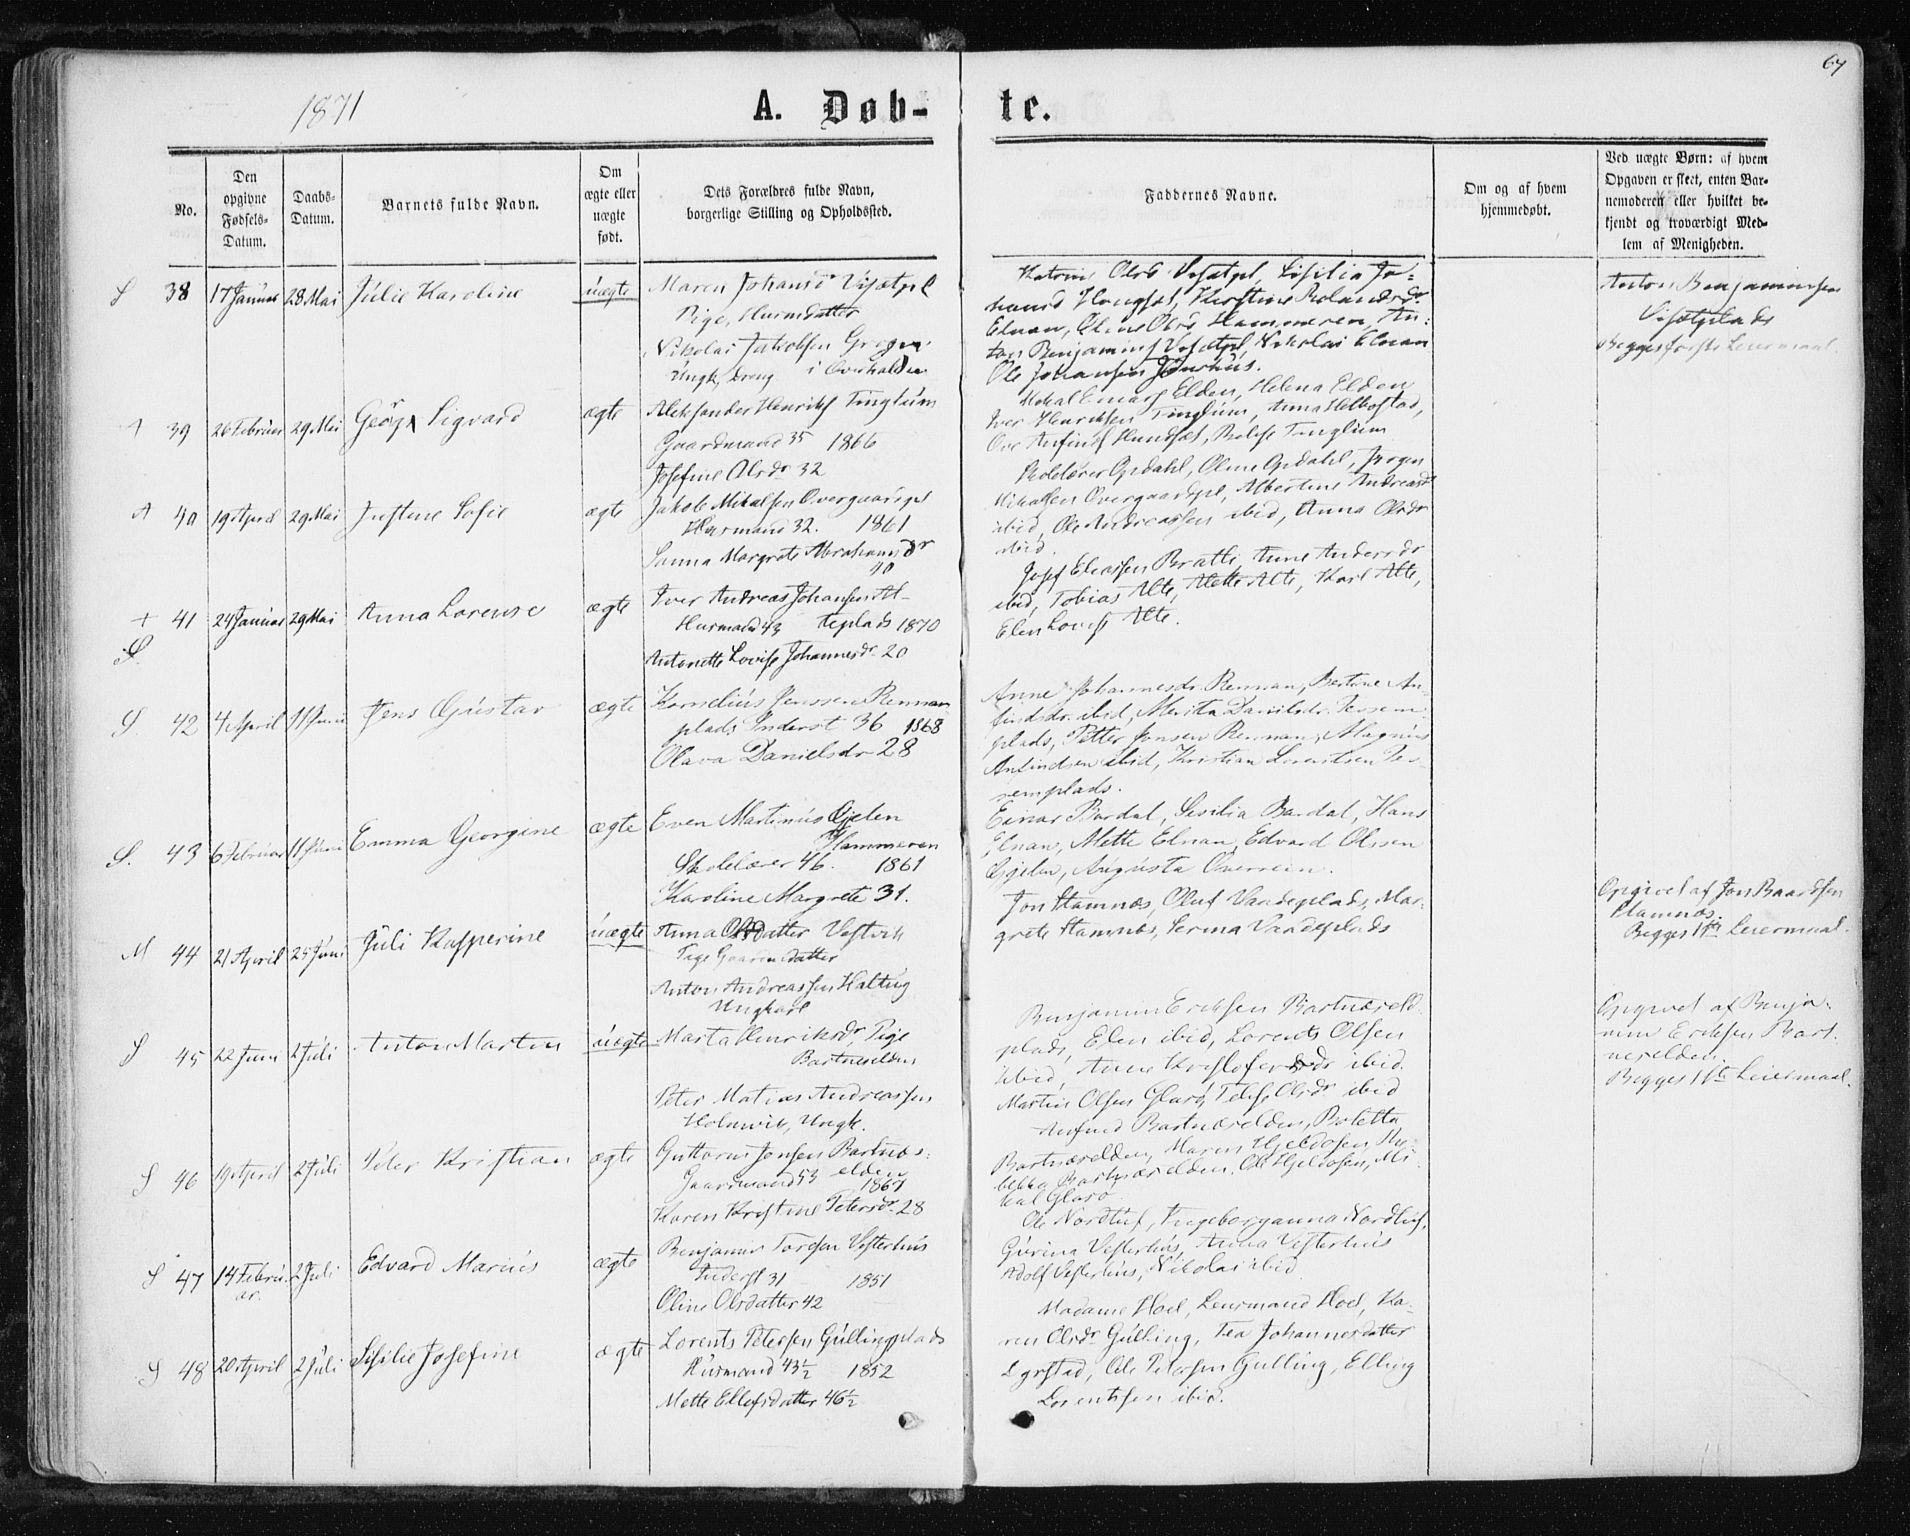 67
1871
A. Døb-
te.
No.
Den opgivne Fødsels-Datum.
Daabs-Datum.
Barnets fulde Navn.
Om ægte eller uægte født.
Dets Forældres fulde Navn,
borgerlige Stilling og Opholdssted.
Faddernes Navne.
Om og af hvem
hjemmedøbt.
Ved uægte Børn: af hvem
Opgaven er skeet, enten Bar-
nemoderen eller hvilket be-
kjendt og troværdigt Med-
lem af Menigheden.
S 38 17 Januar 28 Mai Julie Karoline uægte Maren Johansd
Pige, Husmdatter
Nikolai Jakobsen
Ungk, Dreng i Overhalden
Elnan, Oline Olsd Hammeren, An-
ton Benjamins Nikolai Elnan
Ole Johansen
Anton Benjaminsen
Begges første Leiermaal.
A 39 26 Februar 29 Mai Sigvard ægte Aleksander Henriks Tinglum
Gaardmand 35 1866
Josefine Olsdr 32
Elden, Helena Elden
Iver Henriksen Tinglum, Anna Helbostad,
Tinglum
A 40 19 April 29 Mai Justine Sofie ægte Jakob Mikalsen Overgaardspl
Husmand 32. 1861
Sanna Margrete Abrahamsdr
40
Skolelærer Opdahl, Oline Opdahl, Jørgen
Mikalsen Overgaardspl, Albertine Andreasd
ibid, Ole Andreassen ibid, Anna Olsdr
ibid.
+ 41 24 Januar 29 Mai Anna Lorense ægte Iver Andreas Johansen Al-
Husmand 43 teplads 1870
Antonette Lovise Johannesdr 20
S.
Josef Eliassen Bratli, Anne Andersdr
ibid, Tobias Alte, Mette Alte, Karl Alte,
Elen Lovise Alte.
S. 42 4 April 11 Juni Jens Gustav ægte Kornelius Jenssen Rennan
plads Inderst 36 1868
Olava Danielsdr 28
Anne Johannesdr Rennan, Bertine An-
findsdr ibid, Merita Danielsdr
plads, Petter Jonsen Rennan, Magnus
Anfindsen ibid, Kristian Lorentsen
plads.
S. 43 6 Februar 11 Juni Emma Georgine ægte Even Martinus Gjelen
Hammeren
Skolelærer 46. 1861
Karoline Margrete 31.
Einar Bardal, Sesilia Bardal, Hans
Elnan, Mette Elnan, Edvard Olssen
Gjelen, Augusta Overrein.
M 44 21 April 25 Juni Juli Kasperine uægte Anna Olsdatter Vestvik
Pige Gaarmdatter
Anton Andreassen Halting
Ungkarl
Jon Hamnes, Oluf Vandeplads, Mar-
grete Hamnes, Serina Vandeplads
Opgivet af Jon Baardsen
Hamnæs.
Begges 1ste Leiermaal.
S 45 22 Juni 2 Juli Anton Martin uægte Marta Henriksdr, Pige
Bartneselden
Peter Matias Andreassen
Holmvik, Ungk.
Benjamin Eriksen Bartnæseld
plads, Elen ibid, Lorents Olsen
ibid, Anne Kristofersdr ibid.
Martin Olsen Glarø, Olsdr ibid
Opgivet af Benja-
min Eriksen Bart-
neselden.
Begges 1ste Leiermaal.
S 46 19 April 2 Juli Peter Kristian ægte Guttorm Jonsen Bartnæs-
elden
Gaardmand 53 1867
Karen Kristine Petersdr 28
Anfind Bartnæselden, Boletta
Bartnæselden, Maren Hjeldosen, Re-
bekka Bartnæselden, Ole Hjeldosen, Mi-
kal Glarø
S 47 14 Febru-
ar. 2 Juli Edvard Marius ægte Benjamin Toresen Vesterhus
Inderst 31 1851
Oline Olsdatter 42
Ole Nordtuf, Ingeborganna Nordtuf,
Gurina Vesterhus, Anna Vesterhus
Adolf Vesterhus, Nikolai ibid
S 48 20 April 2 Juli Sisilie Josefine ægte Lorents Petersen Gullingplads
Husmand 43½ 1852
Mette Ellefsdatter 46½
Madame Hoel, Lensmand Hoel, Ka-
ren Olsdr Gulling, Tea Johannesdatter
Ole Petersen Gulling, Elling
Lorentsen ibid.